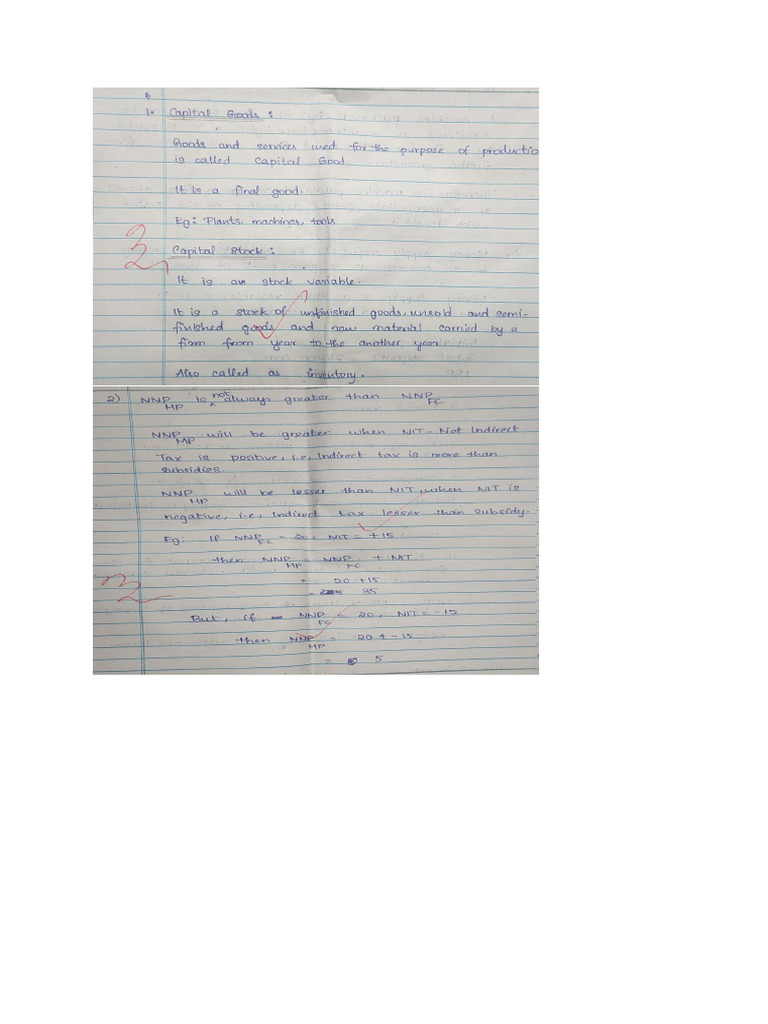 1. Capital Goods :
Goods and services used for the purpose of productio
is called Capital Good.
It is a final good.
Eg: Plants, machines, tools
2
Capital Stock :
It is an stock variable.
It is a stock of unfinished goods, unsold and semi-
finished goods and raw material carried by a
firm from year to the another year
Also called as inventory.
2) NNP MP is not always greater than NNP FC
NNP MP will be greater when NIT - Net Indirect
Tax is positive, i.e, Indirect tax is more than
subsidies.
NNP MP will be lesser than NIT, when NIT is
negative, i.e, Indirect tax lesser than subsidy.
Eg: If NNP FC = 20, NIT = +15
then NNP MP = NNP FC + NIT
= 20 +15
= 35
But, if NNP FC = 20, NIT = -15
then NNP MP = 20 + -15
= 5